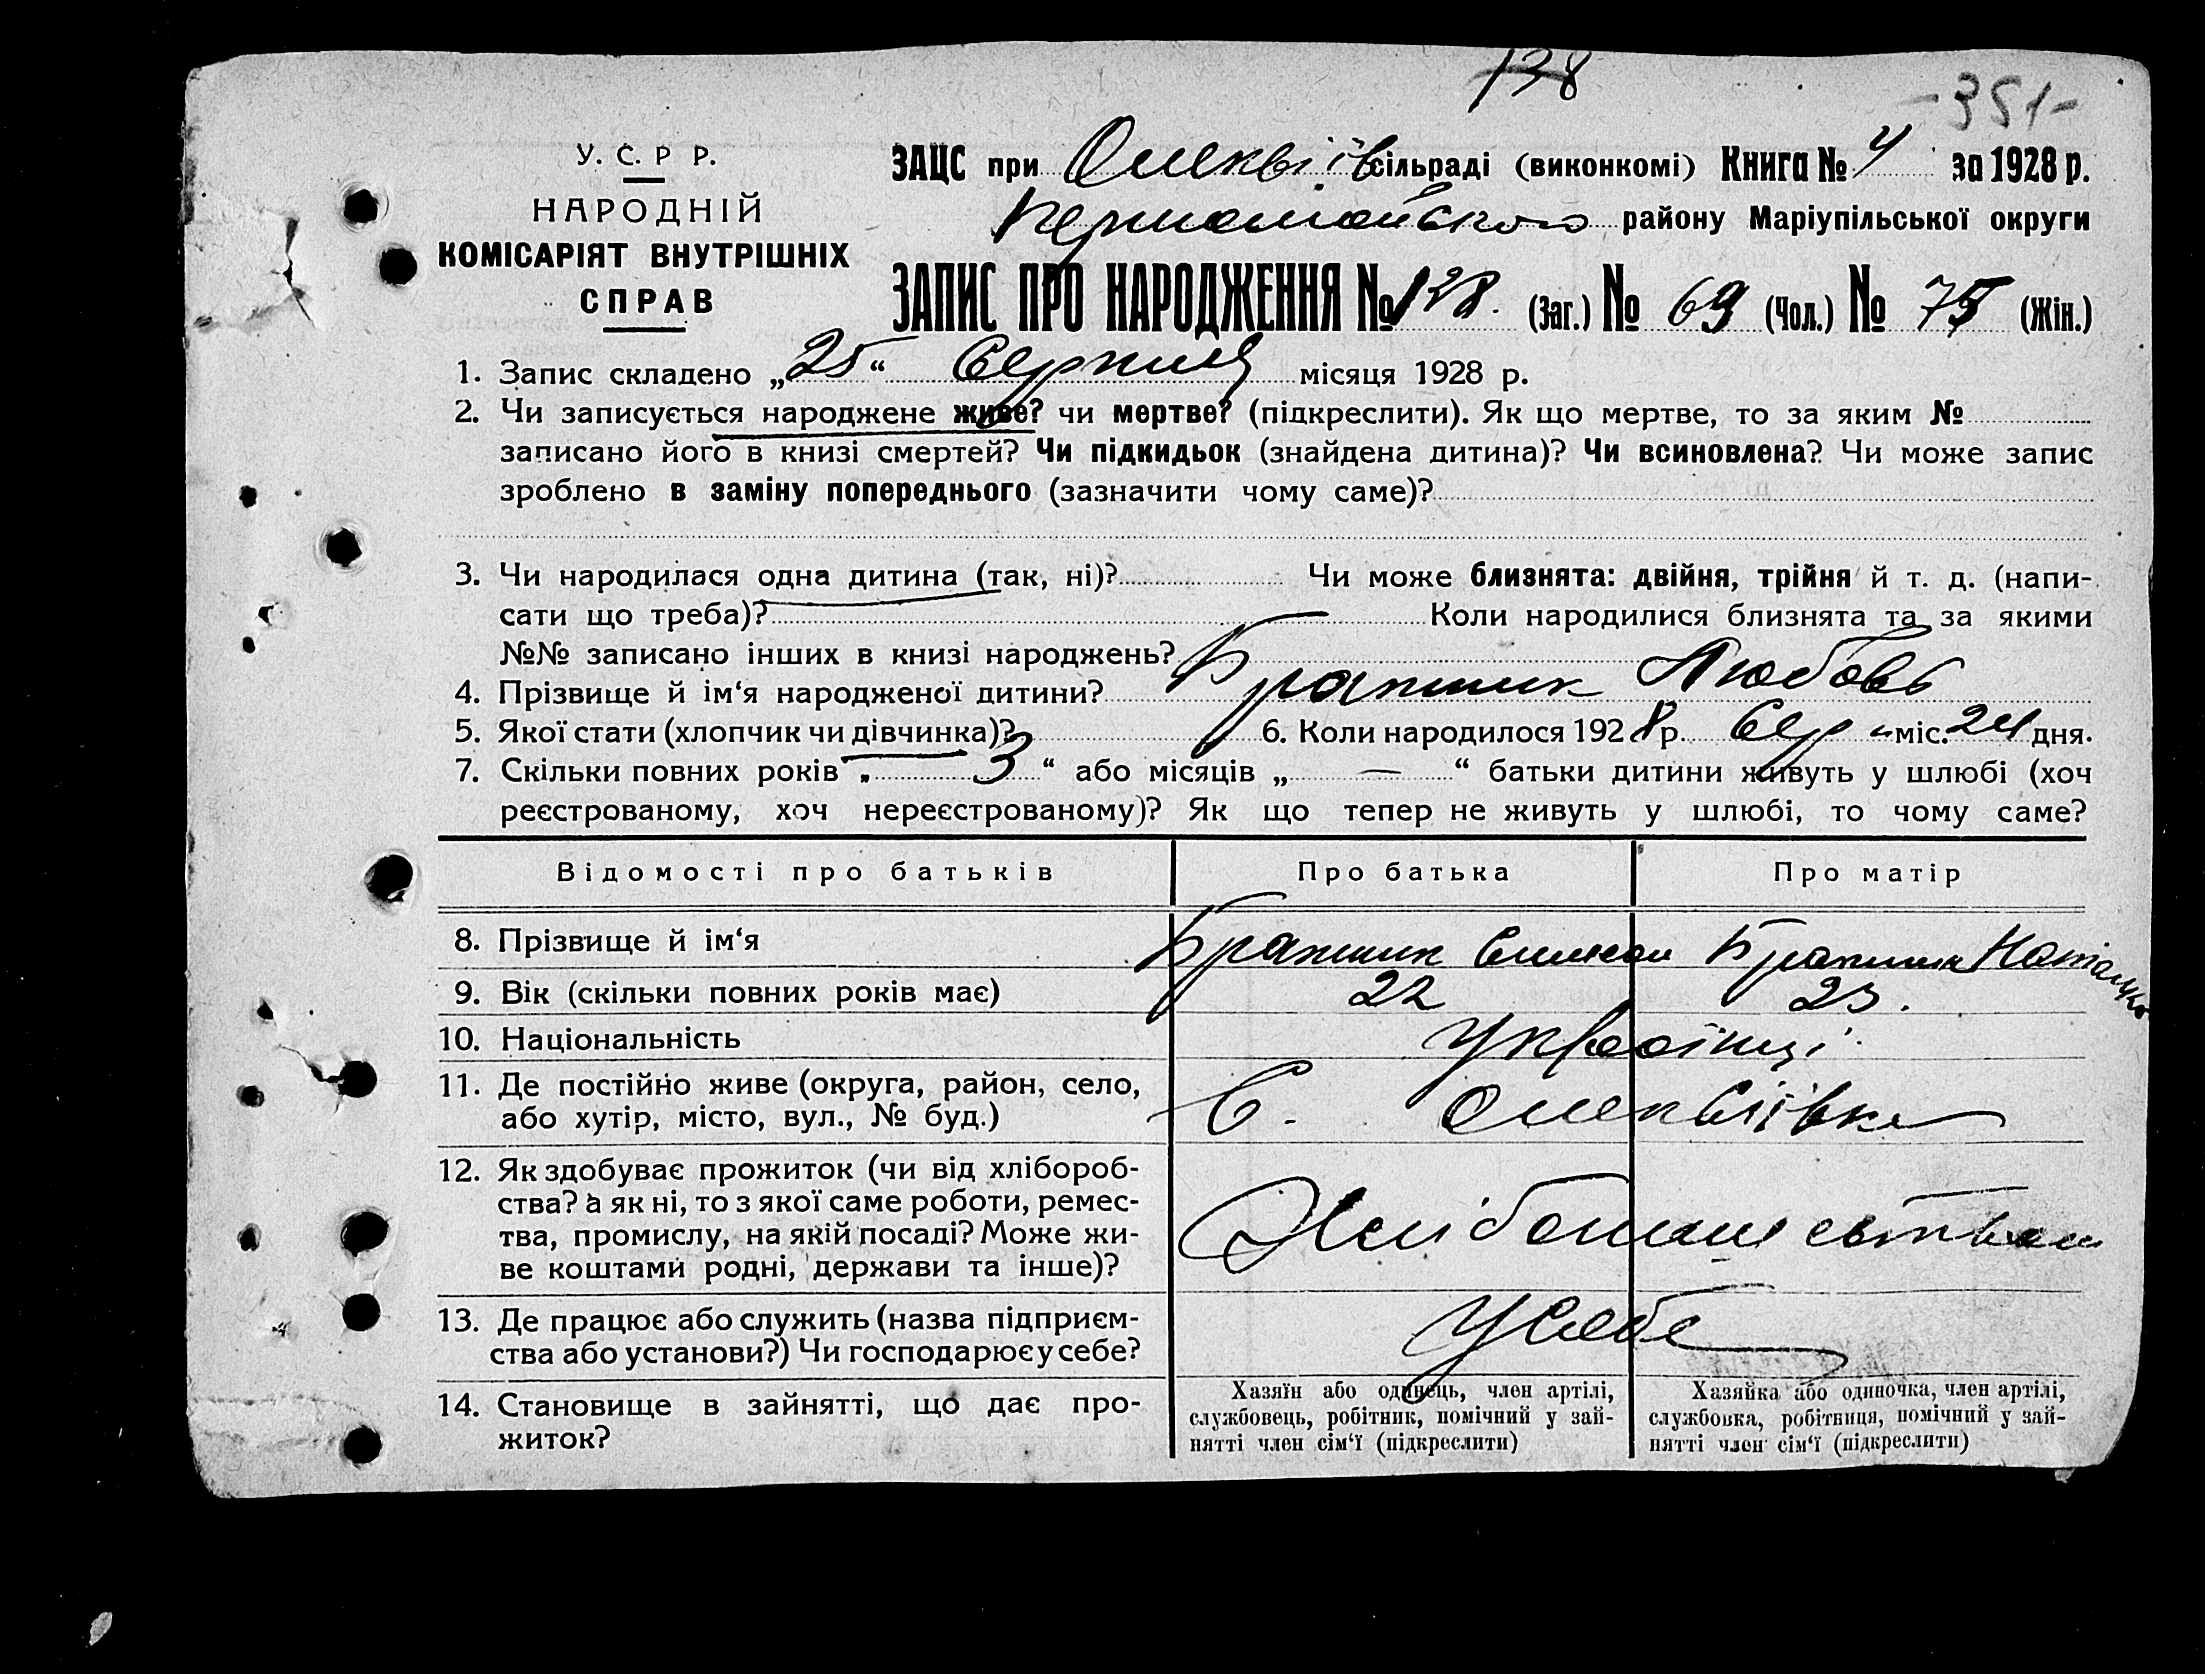 138
-351-
У. С. Р Р.
НАРОДНІЙ
КОМІСАРІЯТ ВНУТРІШНІХ
СПРАВ
ЗАЦС при сільраді (виконкомі) Книга № 4 за 1928 р.
Першомайського району Маріупільської округи
ЗАПИС ПРО НАРОДЖЕННЯ № 138. (Заг.) № 63 (Чол.) № 75 (Жін.)
1. Запис складено „25“ Серпня місяця 1928 р.
2. Чи записується народжене живе? чи мертве? (підкреслити). Як що мертве, то за яким №
записано його в книзі смертей? Чи підкидьок (знайдена дитина)? Чи всиновлена? Чи може запис
зроблено в заміну попереднього (зазначити чому саме)?
3. Чи народилася одна дитина (так, ні)? Чи може близнята: двійня, трійня й т. д. (напи-
сати що треба)? Коли народилися близнята та за якими
№№ записано інших в книзі народжень?
4. Прізвище й ім‘я народженої дитини? Любовь
5. Якої стати (хлопчик чи дівчинка)? 6. Коли народилося 1928 р. Сер „міс. 24 дня.
7. Скільки повних років „ 3 “ або місяців „ — “ батьки дитини живуть у шлюбі (хоч
реєстрованому, хоч нереєстрованому)? Як що тепер не живуть у шлюбі, то чому саме?
Відомості про батьків Про батька Про матір
8. Прізвище й ім‘я
9. Вік (скільки повних років має) 22 23.
10. Національність Українці
11. Де постійно живе (округа, район, село, С.
або хутір, місто, вул., № буд.)
12. Як здобуває прожиток (чи від хлібороб-
ства? а як ні, то з якої саме роботи, ремес-
тва, промислу, на якій посаді? Може жи-
ве коштами родні, держави та інше)?
13. Де працює або служить (назва підприєм- У себе
ства або установи?) Чи господарює у себе?
14. Становище в зайнятті, що дає про-
житок?
Хазяїн або одинець, член артілі,
службовець, робітник, помічний у зай-
нятті член сім‘ї (підкреслити)
Хазяйка або одиночка, член артілі,
службовка, робітниця, помічний у зай-
нятті член сім‘ї (підкреслити)